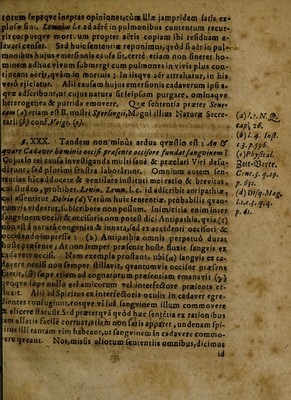 torum sæpeque ineptas opiniones, cùm illæ jampridem satis ex-
plosæ sint. Lemnius l.c. ad aërê in pulmonibus contentum recur-
rit corpusque mort. um propter aëris copiam ibi residuam e-
levari censet. Sed huic sententiæ reponimus, quòd si aër in pul-
monibus hujus emersionis causa sit, certè etiam non sineret ho-
minem adhuc vivum submergi cum pulmones in vivis plus con-
tineant aëris, quàm in mortuis; In iisque aër attrahatur, in his
verò ejiciatur. Alii causam hujus emersionis cadaverum ipsi a-
quæ adscribunt, ut cujus natura sit seipsum purgare, omniaque
heterogenea & putrida emovere. Quæ sententia præter Sene-
cam (a) etiam est B. nostri Sperlingii, Magni illius Naturæ Secre-
tarii (b) conf. Voigt. (c).
§. XXX. Tandem non minus ardua quæstio est: An &
quare Cadaver hominis occisi præsente occisore fundat sanguinem?
Cujus rei causa investiganda multi sanè & præclari Viri desu-
darunt, sed plurimi frustra laborarunt. Omnium autem sen-
tentias hîc adducere & ventilare instituti mei ratio & brevitas,
cui studeo, prohibet. Levin. Lemn. l. c. id adscribit antipathiæ,
cui assentitur Deusing. (d) Verùm huic sententiæ, probabilis quan-
tumvis videatur, subscribere non possum. Inimicitia enim inter
sanguinem occisi & occisoris non potest dici Antipathia, quia, (1)
non est à natura congenita & innata, sed ex accidenti occisori &
occidendo impressa: (2) Antipathia omnis perpetuò durat
hoste præsente; At non semper præsente hoste fluxit sanguis ex
cadavere occisi. Nam exempla prostant, ubi (α) sangvis ex ca-
davere occisi non semper stillavit, quantumvis occisor præsens
fuerit, (β) sæpe etiam ad cognatorum præsentiam emanavit (γ)
quoque sæpe nullo vel amicorum vel interfectore præsente ef-
fluxit. Alii ad Spiritus ex interfectoris oculis in cadaver egre-
dientes confugiunt, eosque vi suâ sanguinem illum commovere
& elicere statuunt. Sed præterquàm quòd hæc sententia ex rationibus
jam allatis facilè corruat, etiam non satis apparet, unde nam spi-
ritus illi tantam vim habeant, ut sanguinem in cadavere commo-
vere queant. Nos, missis aliorum sententiis omnibus, dicimus
id
(a) l. 3. N. Q.
cap. 26.
(b) l. 4. Inst.
c. 3. p. 596.
(c) Physical.
Zeit-Vertr.
Cent. 3. q. 19.
p. 471.
(d) Disq. Mag.
l. 1. c. 3. q. 4.
p. 41.